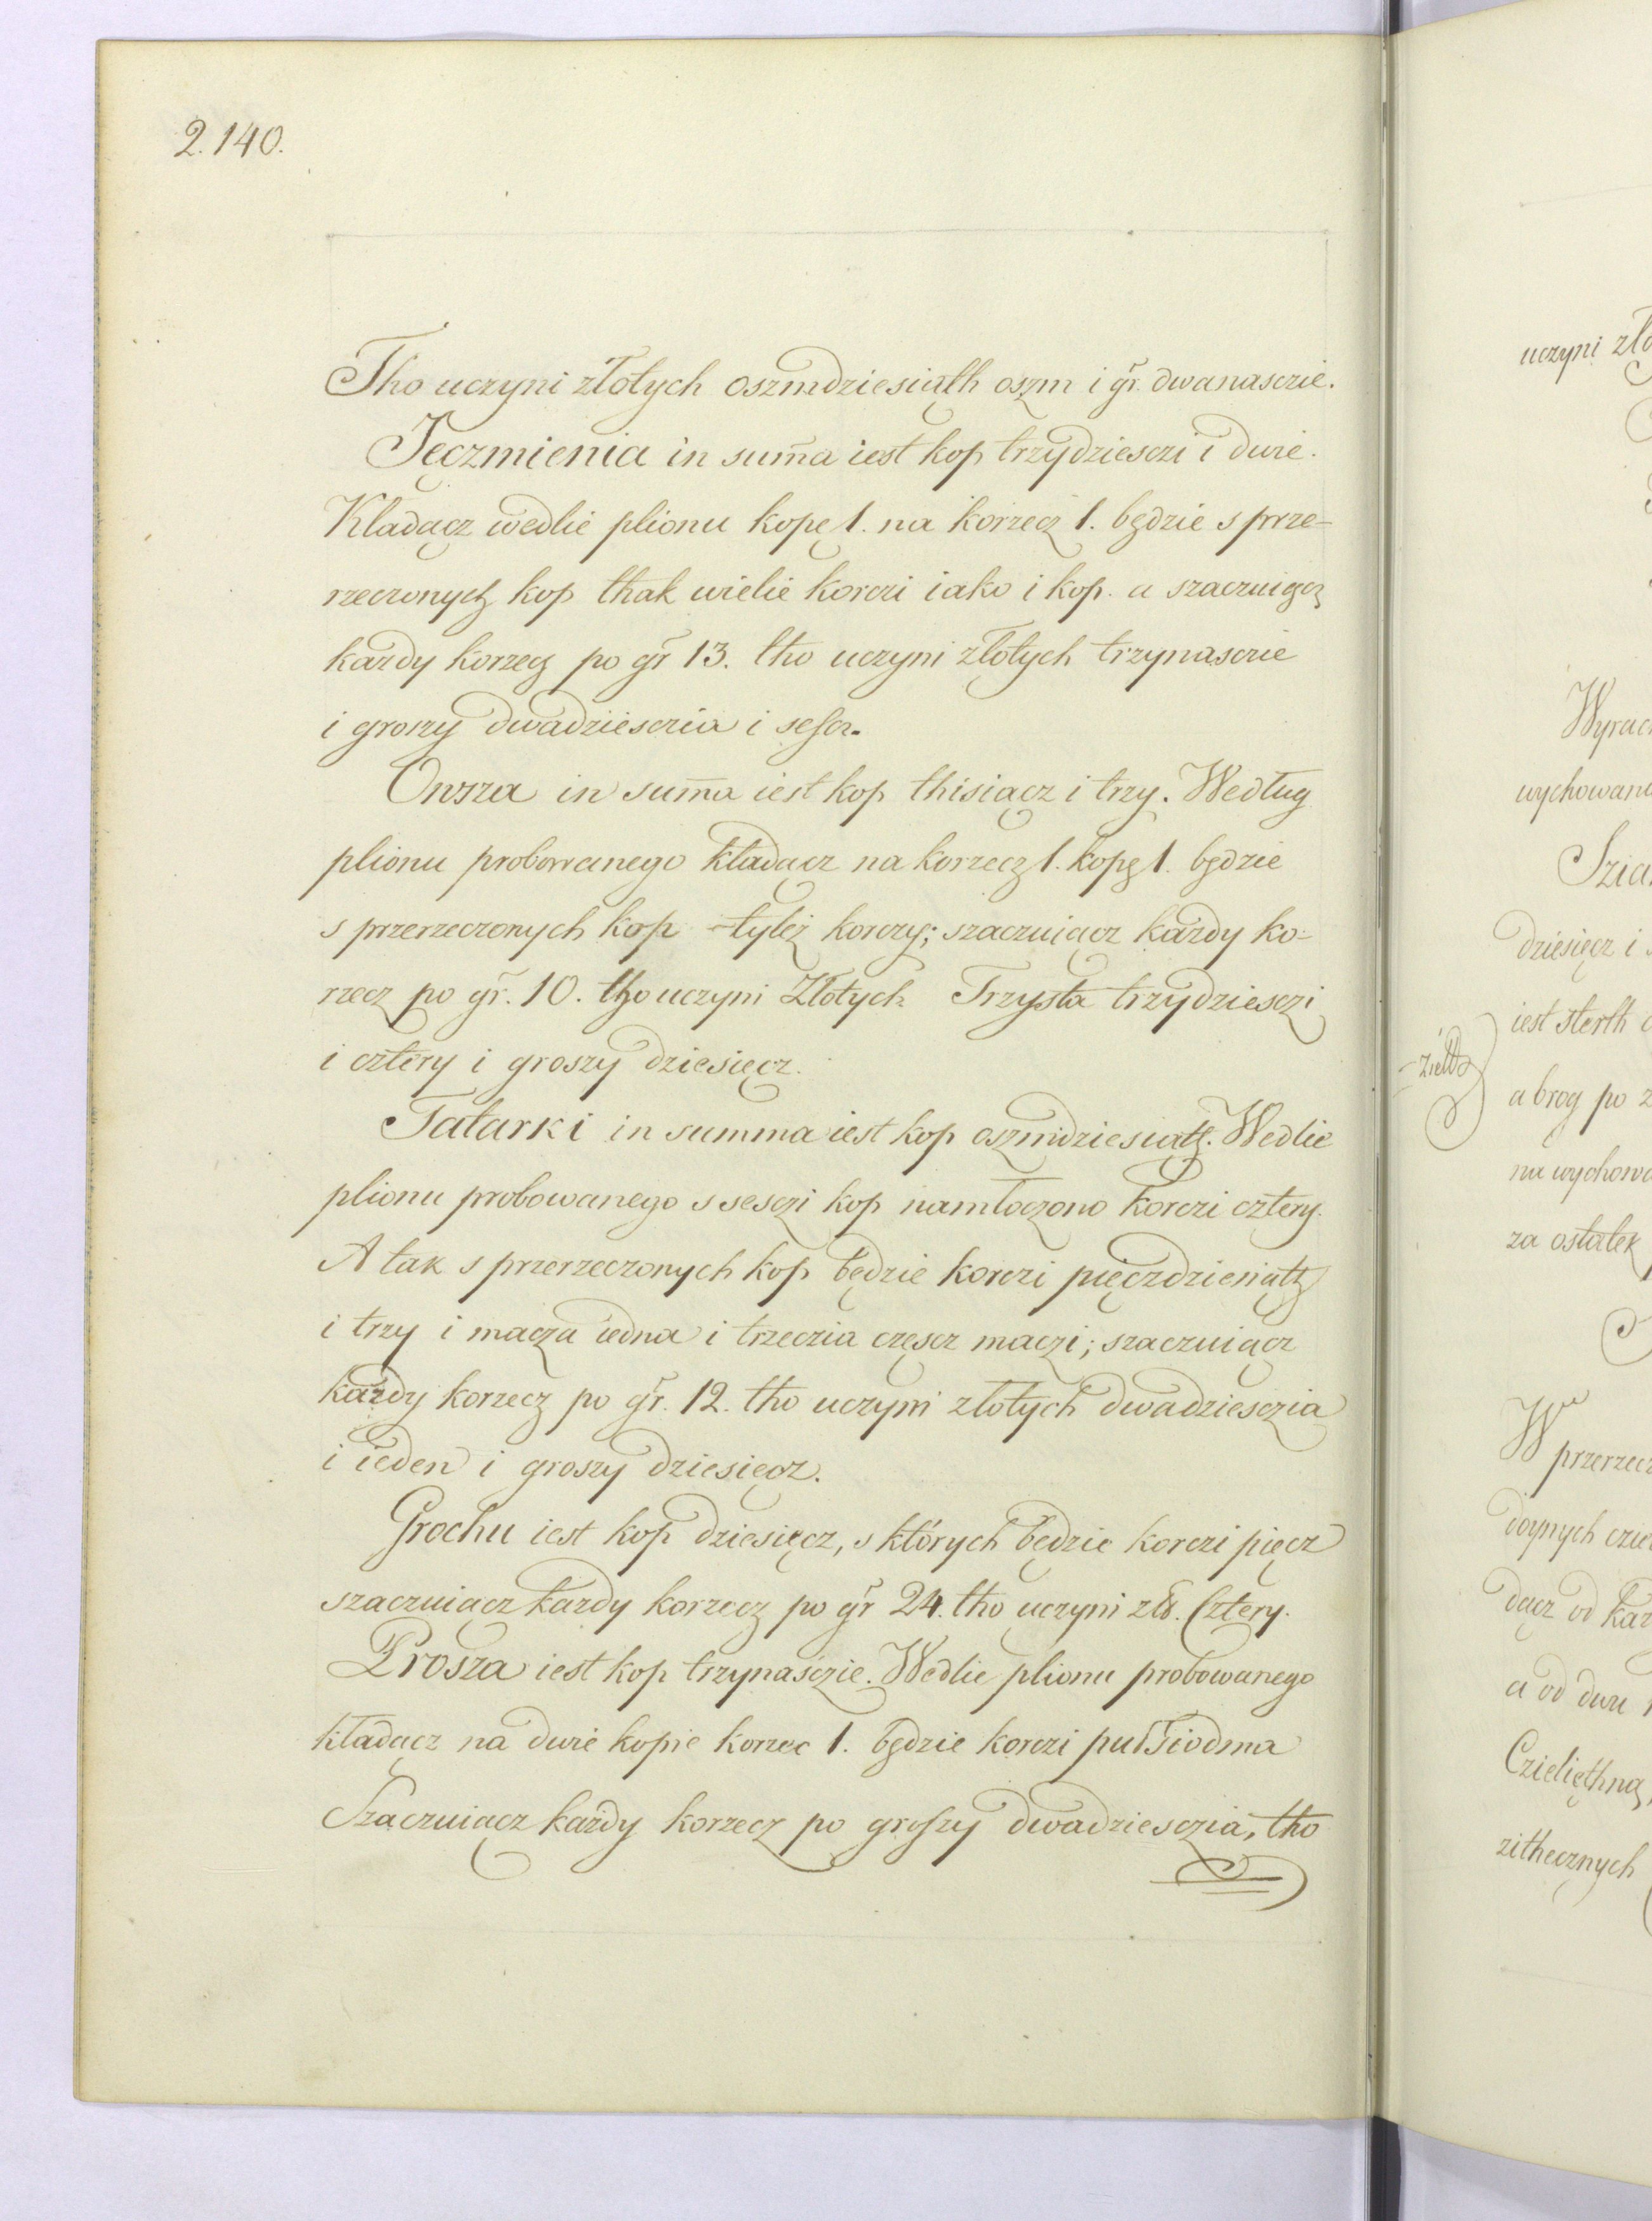 2.140.
Tho uczyni złotych oszmdziesiąth oszm i gr. dwanasczie.
Jęczmienia in suma iest kop trzydziesczi i dwie.
Kladącz wedlie plionu kopę 1. na korzecz 1. będzie s prze-
rzeczonych kop thak wielie korczi iako i kop. a szaczuiącz
kazdy korzecz po gr 13. tho uczyni złotych trzynasczie
i groszy dwadziesczia i sescz.
Owsza in suma iest kop thisiącz i trzy. Według
plionu probowanego kładącz na korzecz 1. kopę 1. będzie
s przerzeczonych kop tyleż korczy; szaczuiącz każdy ko-
rzecz po gr. 10. tho uczyni Złotych Trzysta trzydziesczi
i cztery i groszy dziesięcz.
Tatarki in summa iest kop oszmdziesiąth. Wedlie
plionu probowanego s sesczi kop namłoczono korczi cztery.
A tak s przerzeczonych kop będzie korczi pięczdziesiąth
i trzy i macza iedna i trzeczia częscz maczi; szaczuiącz
każdy korzecz po gr. 12. tho uczyni złotych dwadziesczia
i ieden i groszy dziesięcz.
Grochu iest kop dziesięcz, s których będzie korczi pięcz
szaczuiącz kazdy korzecz po gr 24. tho uczyni zł. Cztery.
Prosza iest kop trzynasczie. Wedlie plionu probowanego
kładącz na dwie kopie korzec 1. będzie korczi puł siodma
Szaczuiącz każdy korzecz po groszy dwadziesczia, tho
uczyni
wychowan
dziesięcz i
iest sterth
a brog po
na wychow
za ostatek
W przerzecz
doynych
dącz od
a od dwu
Czieliethną,
zithecznych